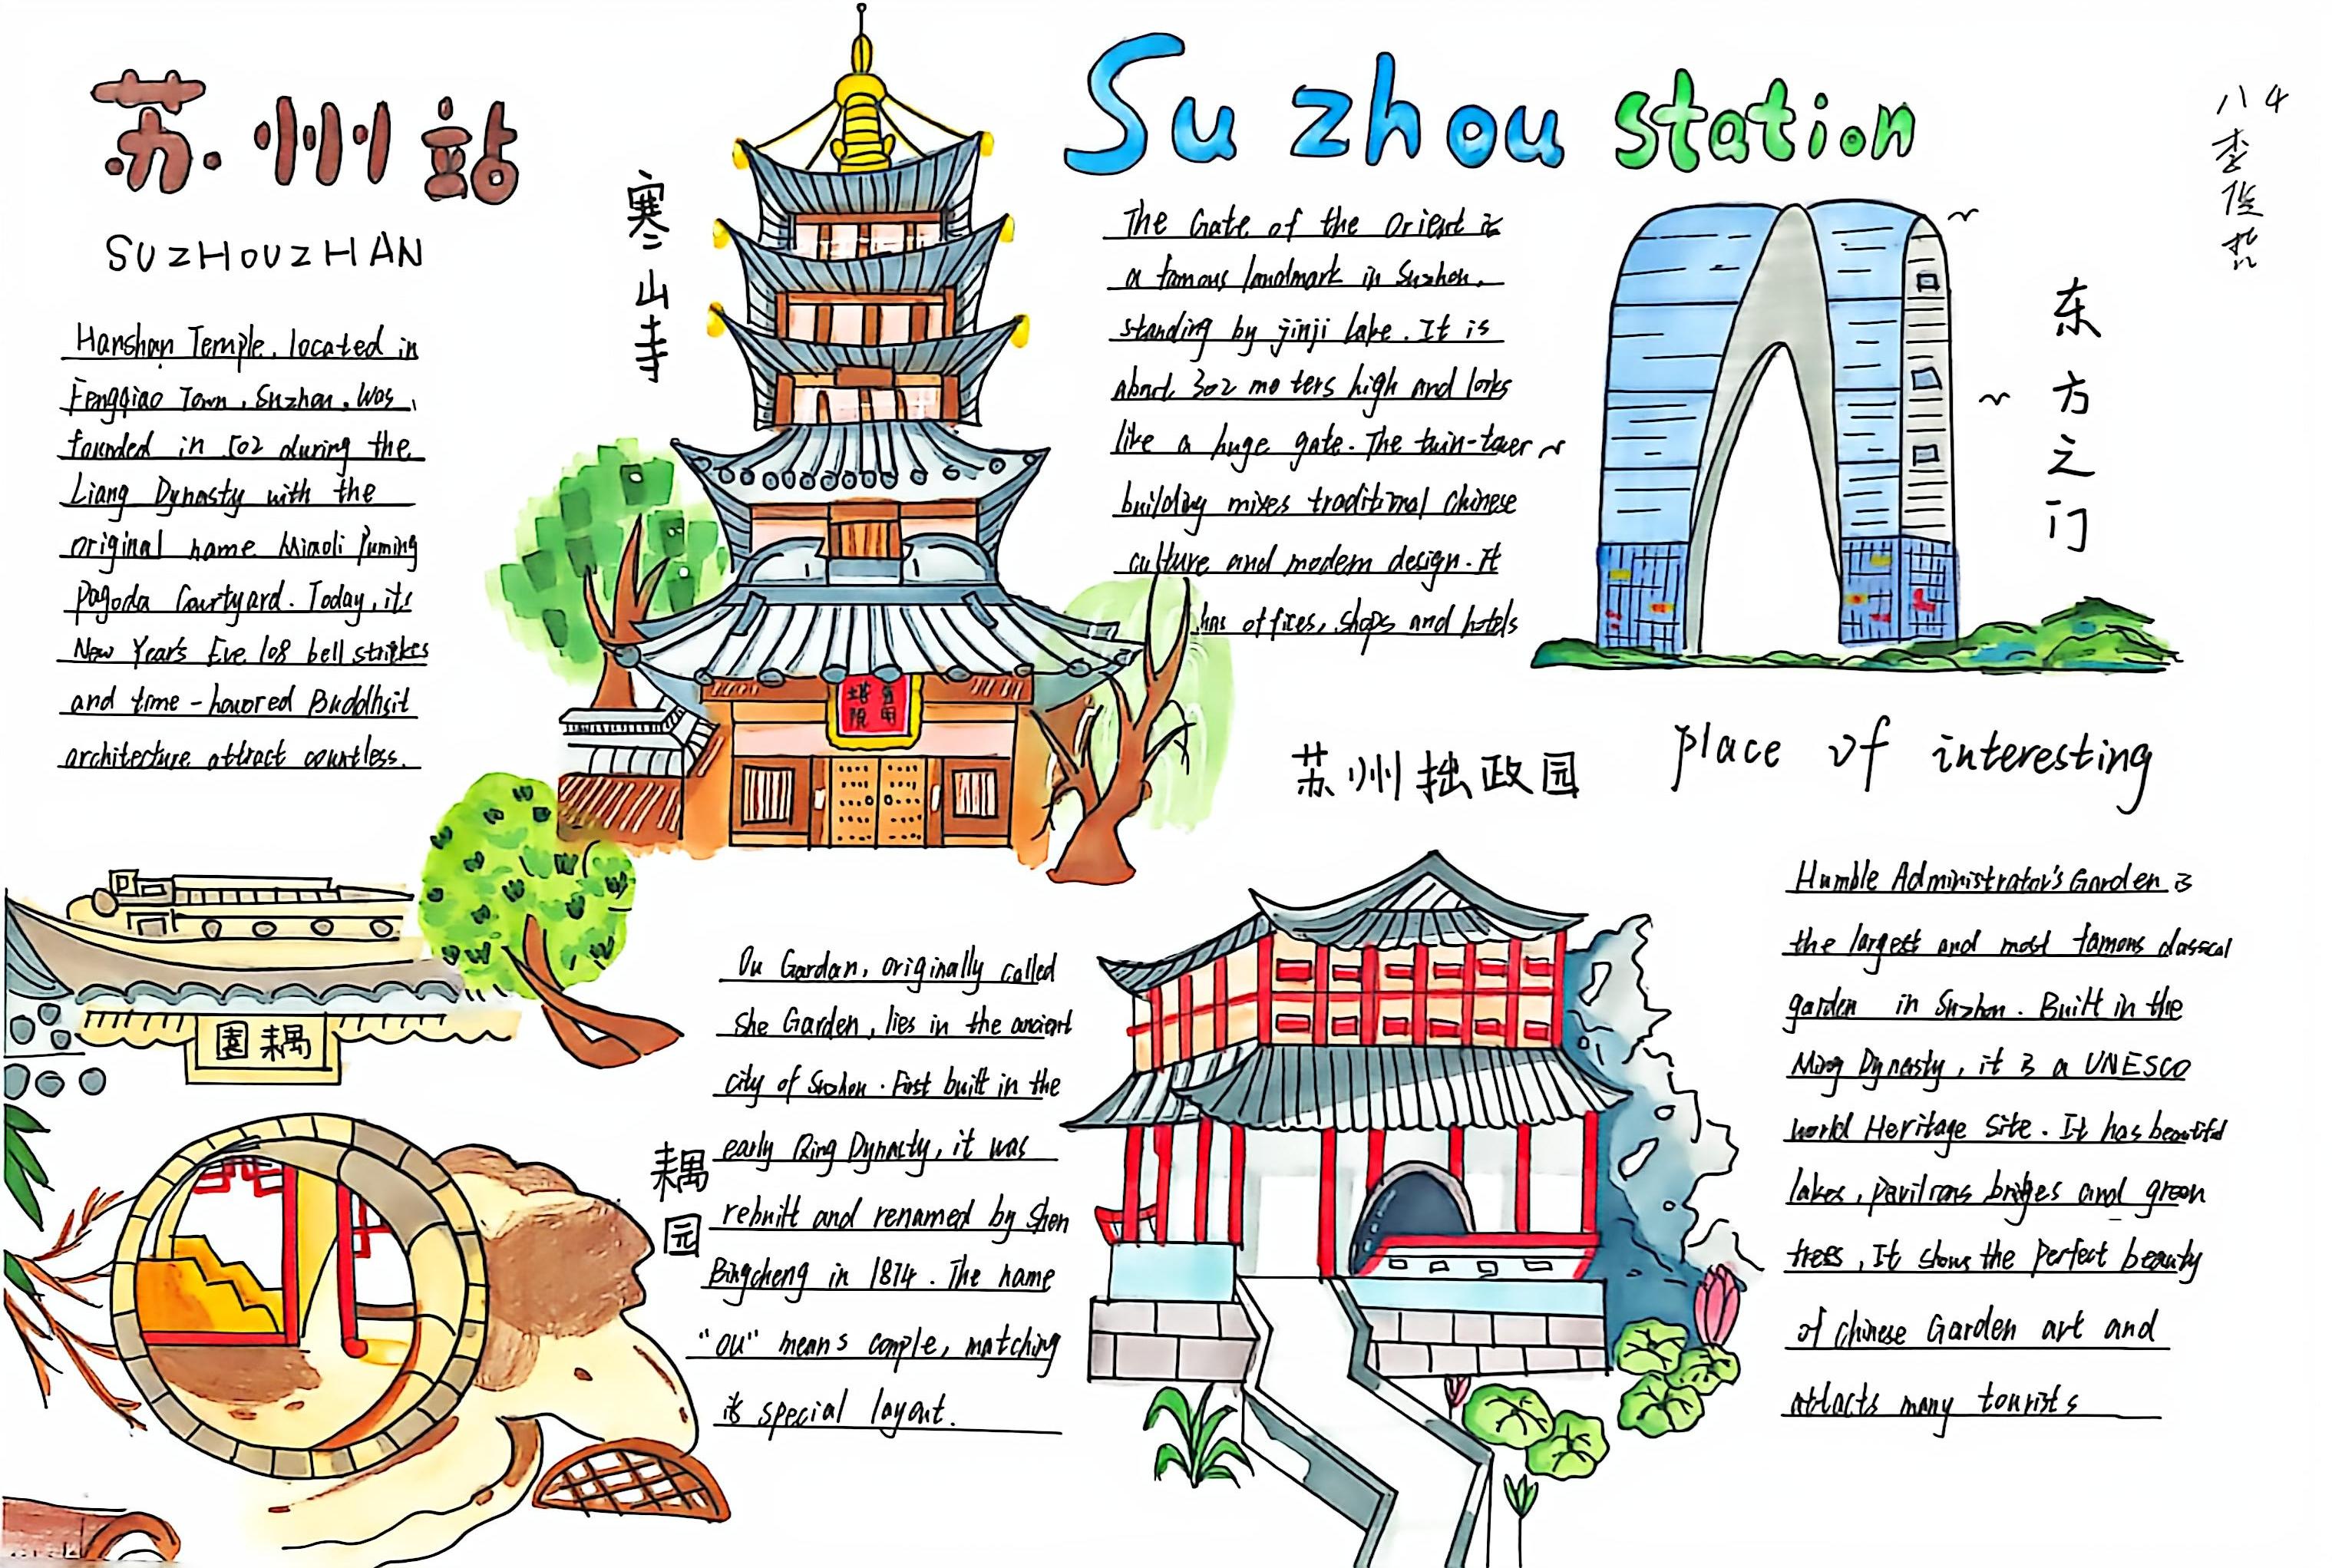 苏州站
SUZHOUZHAN
Hanshan Temple, located in
Fengqiao Town, Suzhou, was,
founded in 502 during the
Liang Dynasty with the
original name Miaoli Puming
Pagoda Courtyard. Today, its
New Year's Eve 108 bell strikes
and time-honored Buddhsit
architecture attract countless.
寒山寺
Suzhou station
The Gate of the Orient is
a famous landmark in Suzhou,
standing by jinji Lake. It is
about 302 meters high and looks
like a huge gate. The twin-tower
building mixes traditional Chinese
culture and modern design. It
has offices, shops and hotels
东方之门
八4
李俊
苏州拙政园
place of interesting
園耦
Ou Gardan, originally called
She Garden, lies in the ancient
city of Suzhou. First built in the
early Qing Dynasty, it was
rebuilt and renamed by Shen
Bingcheng in 1874. The name
"ou" means couple, matching
its special layout.
耦园
Humble Administrator's Garden is
the largest and most famous classical
garden in Suzhou. Built in the
Ming Dynasty, it is a UNESCO
world Heritage Site. It has beautiful
lakes, pavilions bridges and green
trees, It shows the perfect beauty
of chinese Garden art and
attacts many tourists